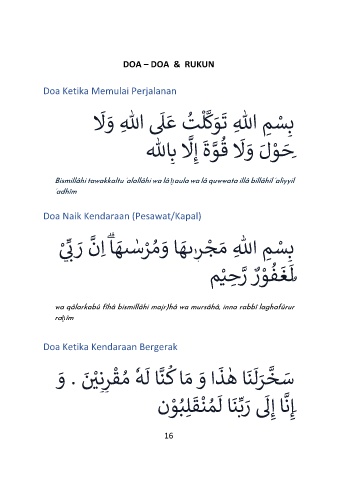 DOA – DOA & RUKUN
Doa Ketika Memulai Perjalanan
بِسْمِ اللهِ تَوَكَّلْتُ عَلَى اللهِ وَلَا
حَوْلَ وَلَا قُوَّةَ إِلَّا بِالله
Bismillâhi tawakkaltu 'alallâhi wa lâ ḥaula wa lâ quwwata illâ billâhil 'aliyyil
'adhîm
Doa Naik Kendaraan (Pesawat/Kapal)
بِسْمِ اللهِ مَجْرٖىهَا وَمُرْسٰىهَاۗ اِنَّ رَبِّيْ
لَغَفُوْرٌ رَّحِيْم
wa qâlarkabû fîhâ bismillâhi majrjhâ wa mursâhâ, inna rabbî laghafûrur
raḥîm
Doa Ketika Kendaraan Bergerak
سَخَّرَلَنَا هٰذَا وَ مَا كُنَّا لَهُ مُقْرِنِيْنَ . وَ
إِنَّا إِلَى رَبِّنَا لَمُنْقَلِبُوْن
16